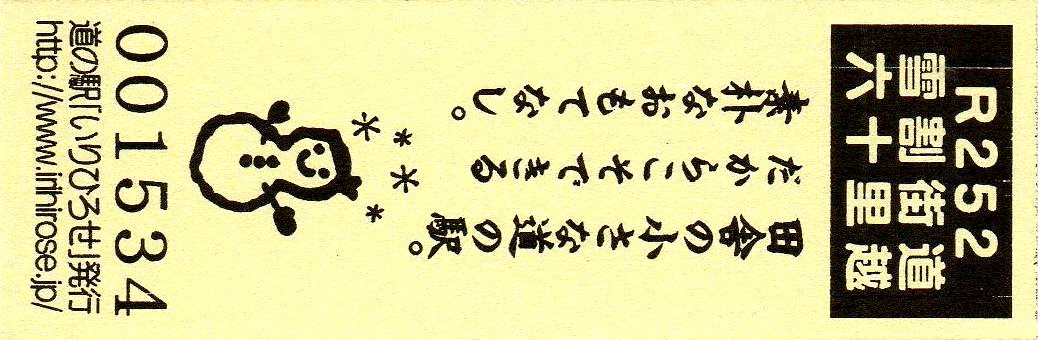 R252
雪割街道
六十里越
田舎の小さな道の駅。
だからこそできる
素朴なおもてなし。
001534
道の駅「いりひろせ」発行
http://www.irihirose.jp/